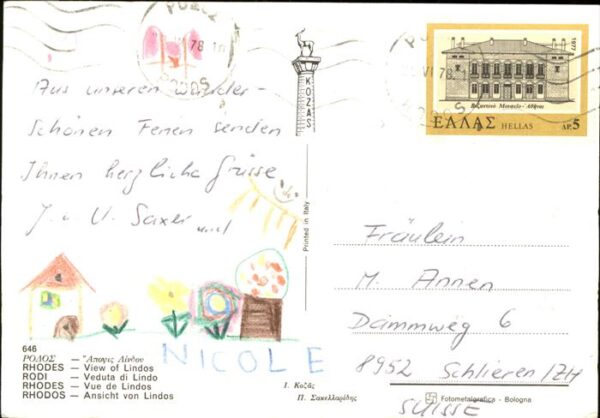 Aus unseren wunder-
schönen Ferien senden
Ihnen herzliche Grüsse
J. u. U. Saxer und
NICOLE
646
ΡΟΔΟΣ — Ἄποψις Λίνδου
RHODES — View of Lindos
RODI — Veduta di Lindo
RHODES — Vue de Lindos
RHODOS — Ansicht von Lindos
KOZAS
Printed in Italy
Ι. Κοζᾶς
Π. Σακελλαρίδης
1977
Βυζαντινό Μουσείο - Αθήναι
ΕΛΛΑΣ HELLAS ΔΡ. 5
ΡΟΔΟΣ
78
Fräulein
M. Annen
Dammweg 6
8952 Schlieren/ZH
SUISSE
Fotometalgrafica - Bologna